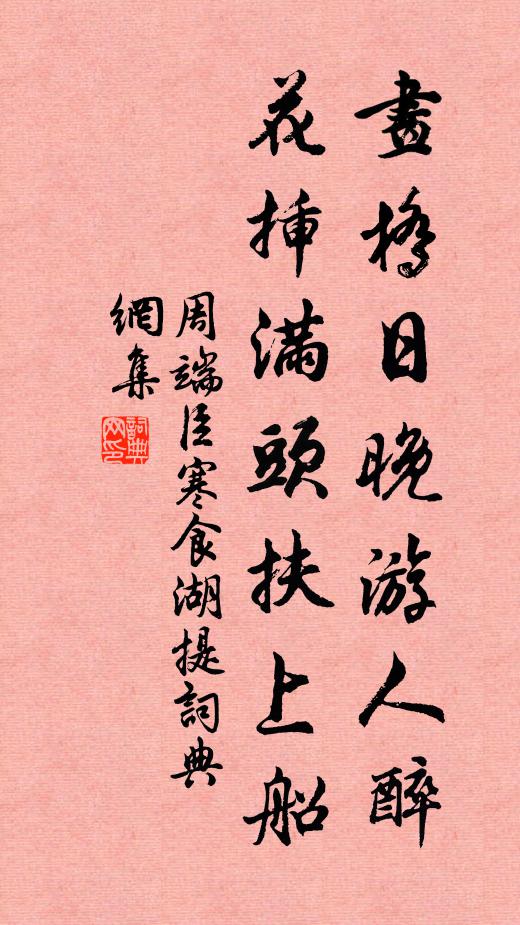 畫橋日晚游人醉
花插滿頭扶上船
周端臣寒食湖提詞典
網集
詞典網印